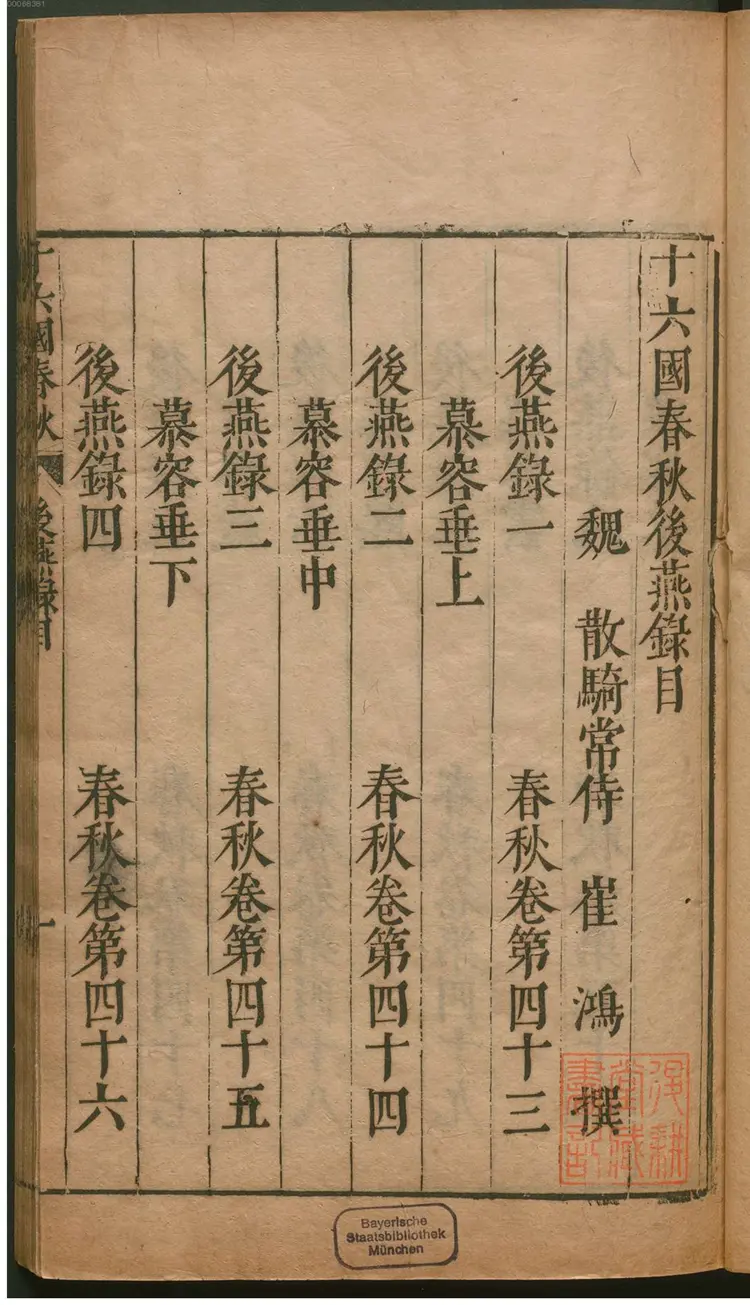 十六國春秋後燕錄目
魏 散騎常侍 崔 鴻 撰
後燕錄一 春秋卷第四十三
慕容垂上
後燕錄二 春秋卷第四十四
慕容垂中
後燕錄三 春秋卷第四十五
慕容垂下
後燕錄四 春秋卷第四十六
十六國春秋 後燕錄目 一
Bayerische
Staatsbibliothek
München
00086361